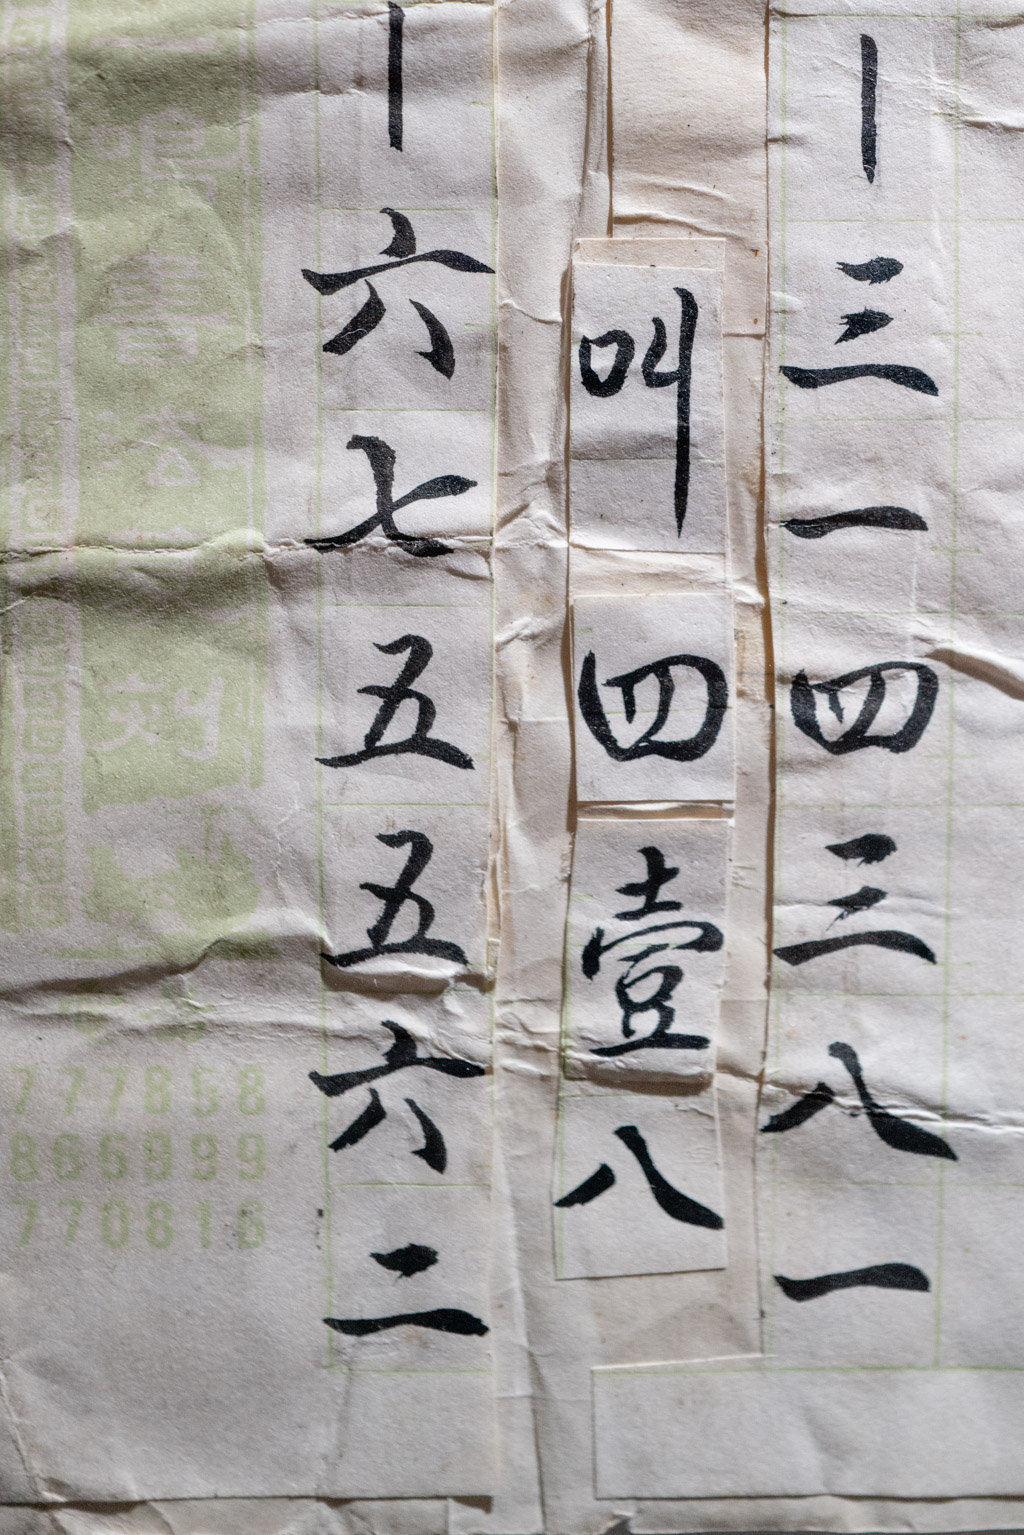 ｜三一四三八一
叫四壹八
｜六七五五六二
777858
866999
770816